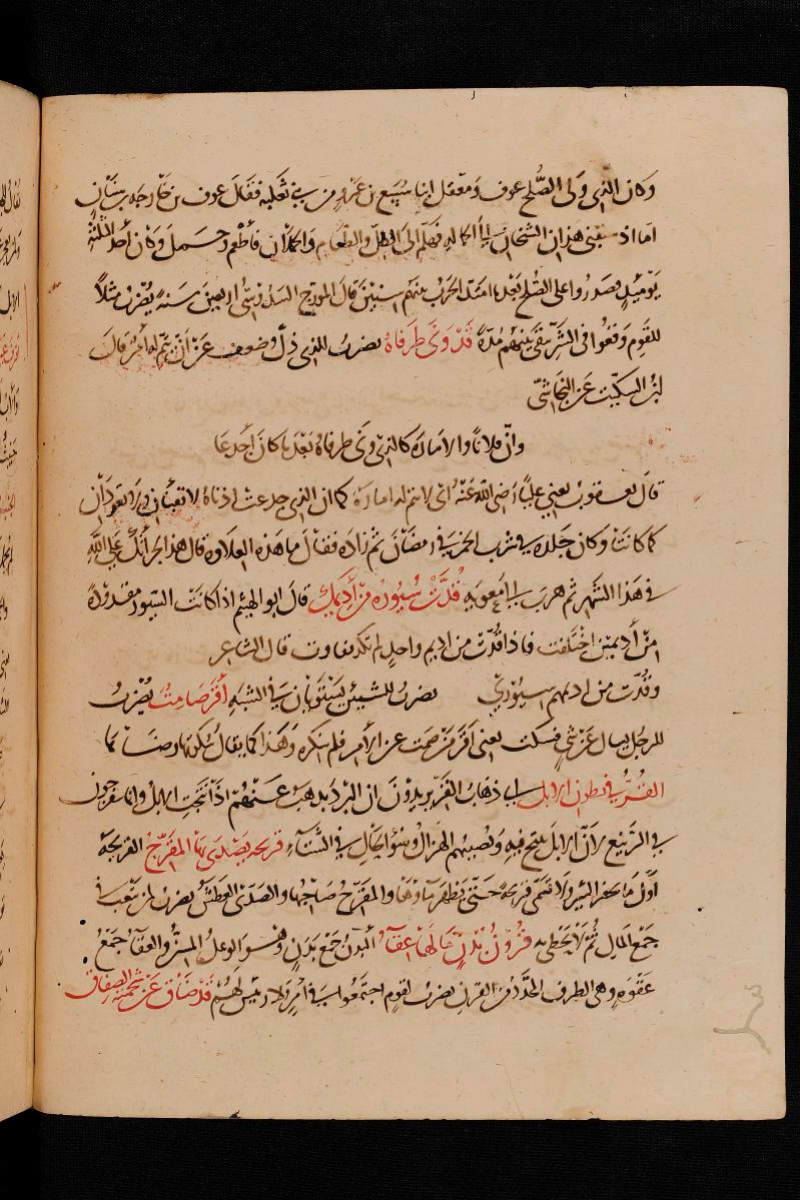 وكان الذي ولى الصُّلح عوف ومعقل ابنا سُبَيع بن عَمْرو من بني ثعلبه فقال عوف بن خارجه بن سنان
اما اذ سبقني هذان الشيخان الى الحماله فهلم الى الظل والطعام والحملان فأطعم وحمل وكان أحد الثلثة
يومئذ فصدروا على الصلح بعدما امتد الحرب بينهم سنين قال المورج السدوسي اربعين سنة يُضْرَبُ مثلاً
للقوم وَقعُوا في الشر يبقى بينهم مُدّة قَدْ وَنَى طَرَفاهُ يضرب للذي ذلّ وضعف عَن أن يتم له أمرٌ قال
ابن السكيت عَن النجاشيّ
وان فلانا والامارة كالذي ونى طرفاه بَعْدَ ما كان أجدعا
قال يعقوب يعني عليًّا رضي الله عَنْهُ اي لا تتم له امارة كما ان الذي جدعت اذناه لا تنبتان ولا تعودان
كما كانتا وكان جلده في شرب الخمر في رمضان ثم زاده فقال ما هذه العلاوه قال هذا لجرأتك على الله
في هَذا الشهر ثم هرب الى معويه قُدَّتْ سُيُورُه مِن أَديمِكَ قال ابو الهيثم اذا كانت السيور مقدودة
من أديمين اختلفت فاذا قُدّت من اديم واحد لم تكد تفاوت قال الشاعر
وقُدّت من اديمهم سيوري يضرب للشيئين يَسْتَوِيان في الشبه أَقَرَّ صَامِتُ يُضْرَبُ
للرجل يسال عَن شي فسكت يعني أقَرّ مَن صَمَت عن الأمر فلم ينكره وهَذا كما يقال سُكوتها رضاها
القُرُّ في بطون الابل اي ذهابُ القُرّ يريدون ان البرد يذهب عَنْهُم اذا نُتجت الابل وانما يفرحون
في الربيع لأن الابل تنتج فيه وتصيبهم الهزال وسُوءُ الحال في الشتاء قريحه يَصْدَى بها المقرّح القريحه
أوّل ما يحفر البئر ولا تسمى قريحة حتّى يظهر ماؤها والمقَرّح صاحبها والصَدى العطش يضرب لمن يتعب في
جمع المال ثم لا يَحْظى به قُرُونُ بُدُنٍ مَا لَهَا عِقَاءُ البدن جَمع بَدَن وهُو الوعل المسنّ والعقاء جَمعُ
عَقوه وهي الطرف المحدّد من القرن يضرب لقوم اجتمعوا في أمر ولا رئيس لهُمْ قَد ضاق عَن شحمته الصِفاق